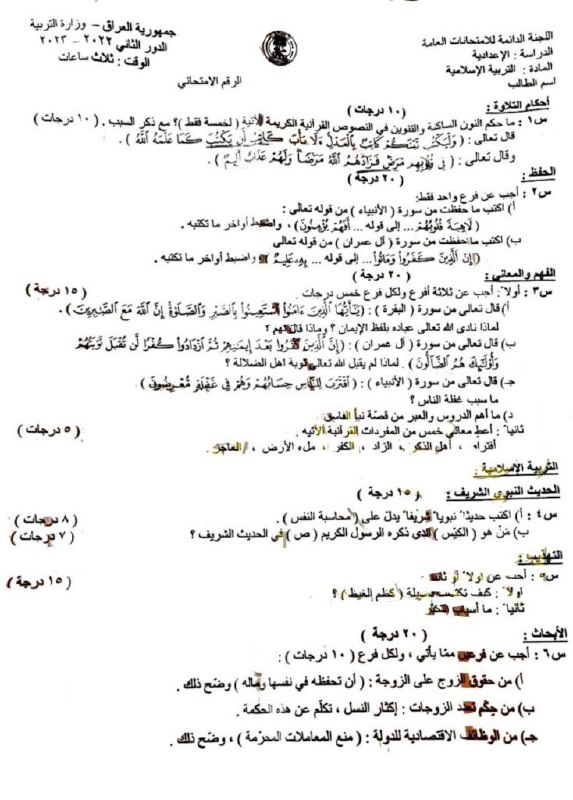 اللجنة الدائمة للامتحانات العامة
الدراسة : الإعدادية
المادة : التربية الإسلامية
اسم الطالب
جمهورية العراق - وزارة التربية
الدور الثاني ٢٠٢٢ - ٢٠٢٣
الوقت : ثلاث ساعات
الرقم الامتحاني
أحكام التلاوة : ( ١٠ درجات )
س١ : ما حكم النون الساكنة والتنوين في النصوص القرآنية الكريمة الآتية ( لخمسة فقط )؟ مع ذكر السبب . ( ١٠ درجات )
قال تعالى : ( وَلْيَكْتُب بَّيْنَكُمْ كَاتِبٌ بِالْعَدْلِ وَلَا يَأْبَ كَاتِبٌ أَن يَكْتُبَ كَمَا عَلَّمَهُ اللَّهُ ) .
وقال تعالى : ( فِي قُلُوبِهِم مَّرَضٌ فَزَادَهُمُ اللَّهُ مَرَضًا وَلَهُمْ عَذَابٌ أَلِيمٌ ) .
الحفظ : ( ٢٠ درجة )
س٢ : أجب عن فرع واحد فقط:
أ) اكتب ما حفظت من سورة ( الأنبياء ) من قوله تعالى :
( لَاهِيَةً قُلُوبُهُمْ ... إلى قوله ... أَفَهُمْ يُؤْمِنُونَ ) ، واضبط أواخر ما تكتبه .
ب) اكتب ما حفظت من سورة ( آل عمران ) من قوله تعالى
( إِنَّ الَّذِينَ كَفَرُوا وَمَاتُوا ... إلى قوله ... بِهِ عَلِيمٌ ) واضبط أواخر ما تكتبه .
الفهم والمعاني : ( ٢٠ درجة )
س٣ : أولاً : أجب عن ثلاثة أفرع ولكل فرع خمس درجات . ( ١٥ درجة )
أ) قال تعالى من سورة ( البقرة ) : ( يَا أَيُّهَا الَّذِينَ ءَامَنُوا اسْتَعِينُوا بِالصَّبْرِ وَالصَّلَوٰةِ إِنَّ اللَّهَ مَعَ الصَّٰبِرِينَ ) .
لماذا نادى الله تعالى عباده بلفظ الإيمان ؟ وماذا قال لهم ؟
ب) قال تعالى من سورة ( آل عمران ) : ( إِنَّ الَّذِينَ كَفَرُوا بَعْدَ إِيمَٰنِهِمْ ثُمَّ ازْدَادُوا كُفْرًا لَّن تُقْبَلَ تَوْبَتُهُمْ
وَأُولَٰئِكَ هُمُ الضَّآلُّونَ ) . لماذا لم يقبل الله تعالى توبة اهل الضلالة ؟
جـ) قال تعالى من سورة ( الأنبياء ) : ( اقْتَرَبَ لِلنَّاسِ حِسَابُهُمْ وَهُمْ فِي غَفْلَةٍ مُّعْرِضُونَ )
ما سبب غفلة الناس ؟
د) ما أهم الدروس والعبر من قصة نبأ الفاسق
ثانياً : أعط معاني خمس من المفردات القرآنية الآتيه : ( ٥ درجات )
أفتراه ، أهل الذكر ، الزاد ، الكفر ، ملء الأرض ، العاجل
التربية الإسلامية :
الحديث النبوي الشريف : ( ١٥ درجة )
س٤ : أ) اكتب حديثاً نبوياً شريفاً يدل على ( محاسبة النفس ) . ( ٨ درجات )
ب) مَنْ هو ( الكيّس ) الذي ذكره الرسول الكريم ( ص ) في الحديث الشريف ؟ ( ٧ درجات )
التهذيب :
س٥ : أجب عن اولاً أو ثانياً ( ١٥ درجة )
اولاً : كيف تكتسب فضيلة ( كظم الغيظ ) ؟
ثانياً : ما أسباب
الأبحاث : ( ٢٠ درجة )
س٦ : أجب عن فرعين ممّا يأتي ، ولكل فرع ( ١٠ درجات ) :
أ) من حقوق الزوج على الزوجة : ( أن تحفظه في نفسها وماله ) وضّح ذلك .
ب) من حِكَم تعدد الزوجات : إكثار النسل ، تكلّم عن هذه الحكمة .
جـ) من الوظائف الاقتصادية للدولة : ( منع المعاملات المحرّمة ) ، وضّح ذلك .